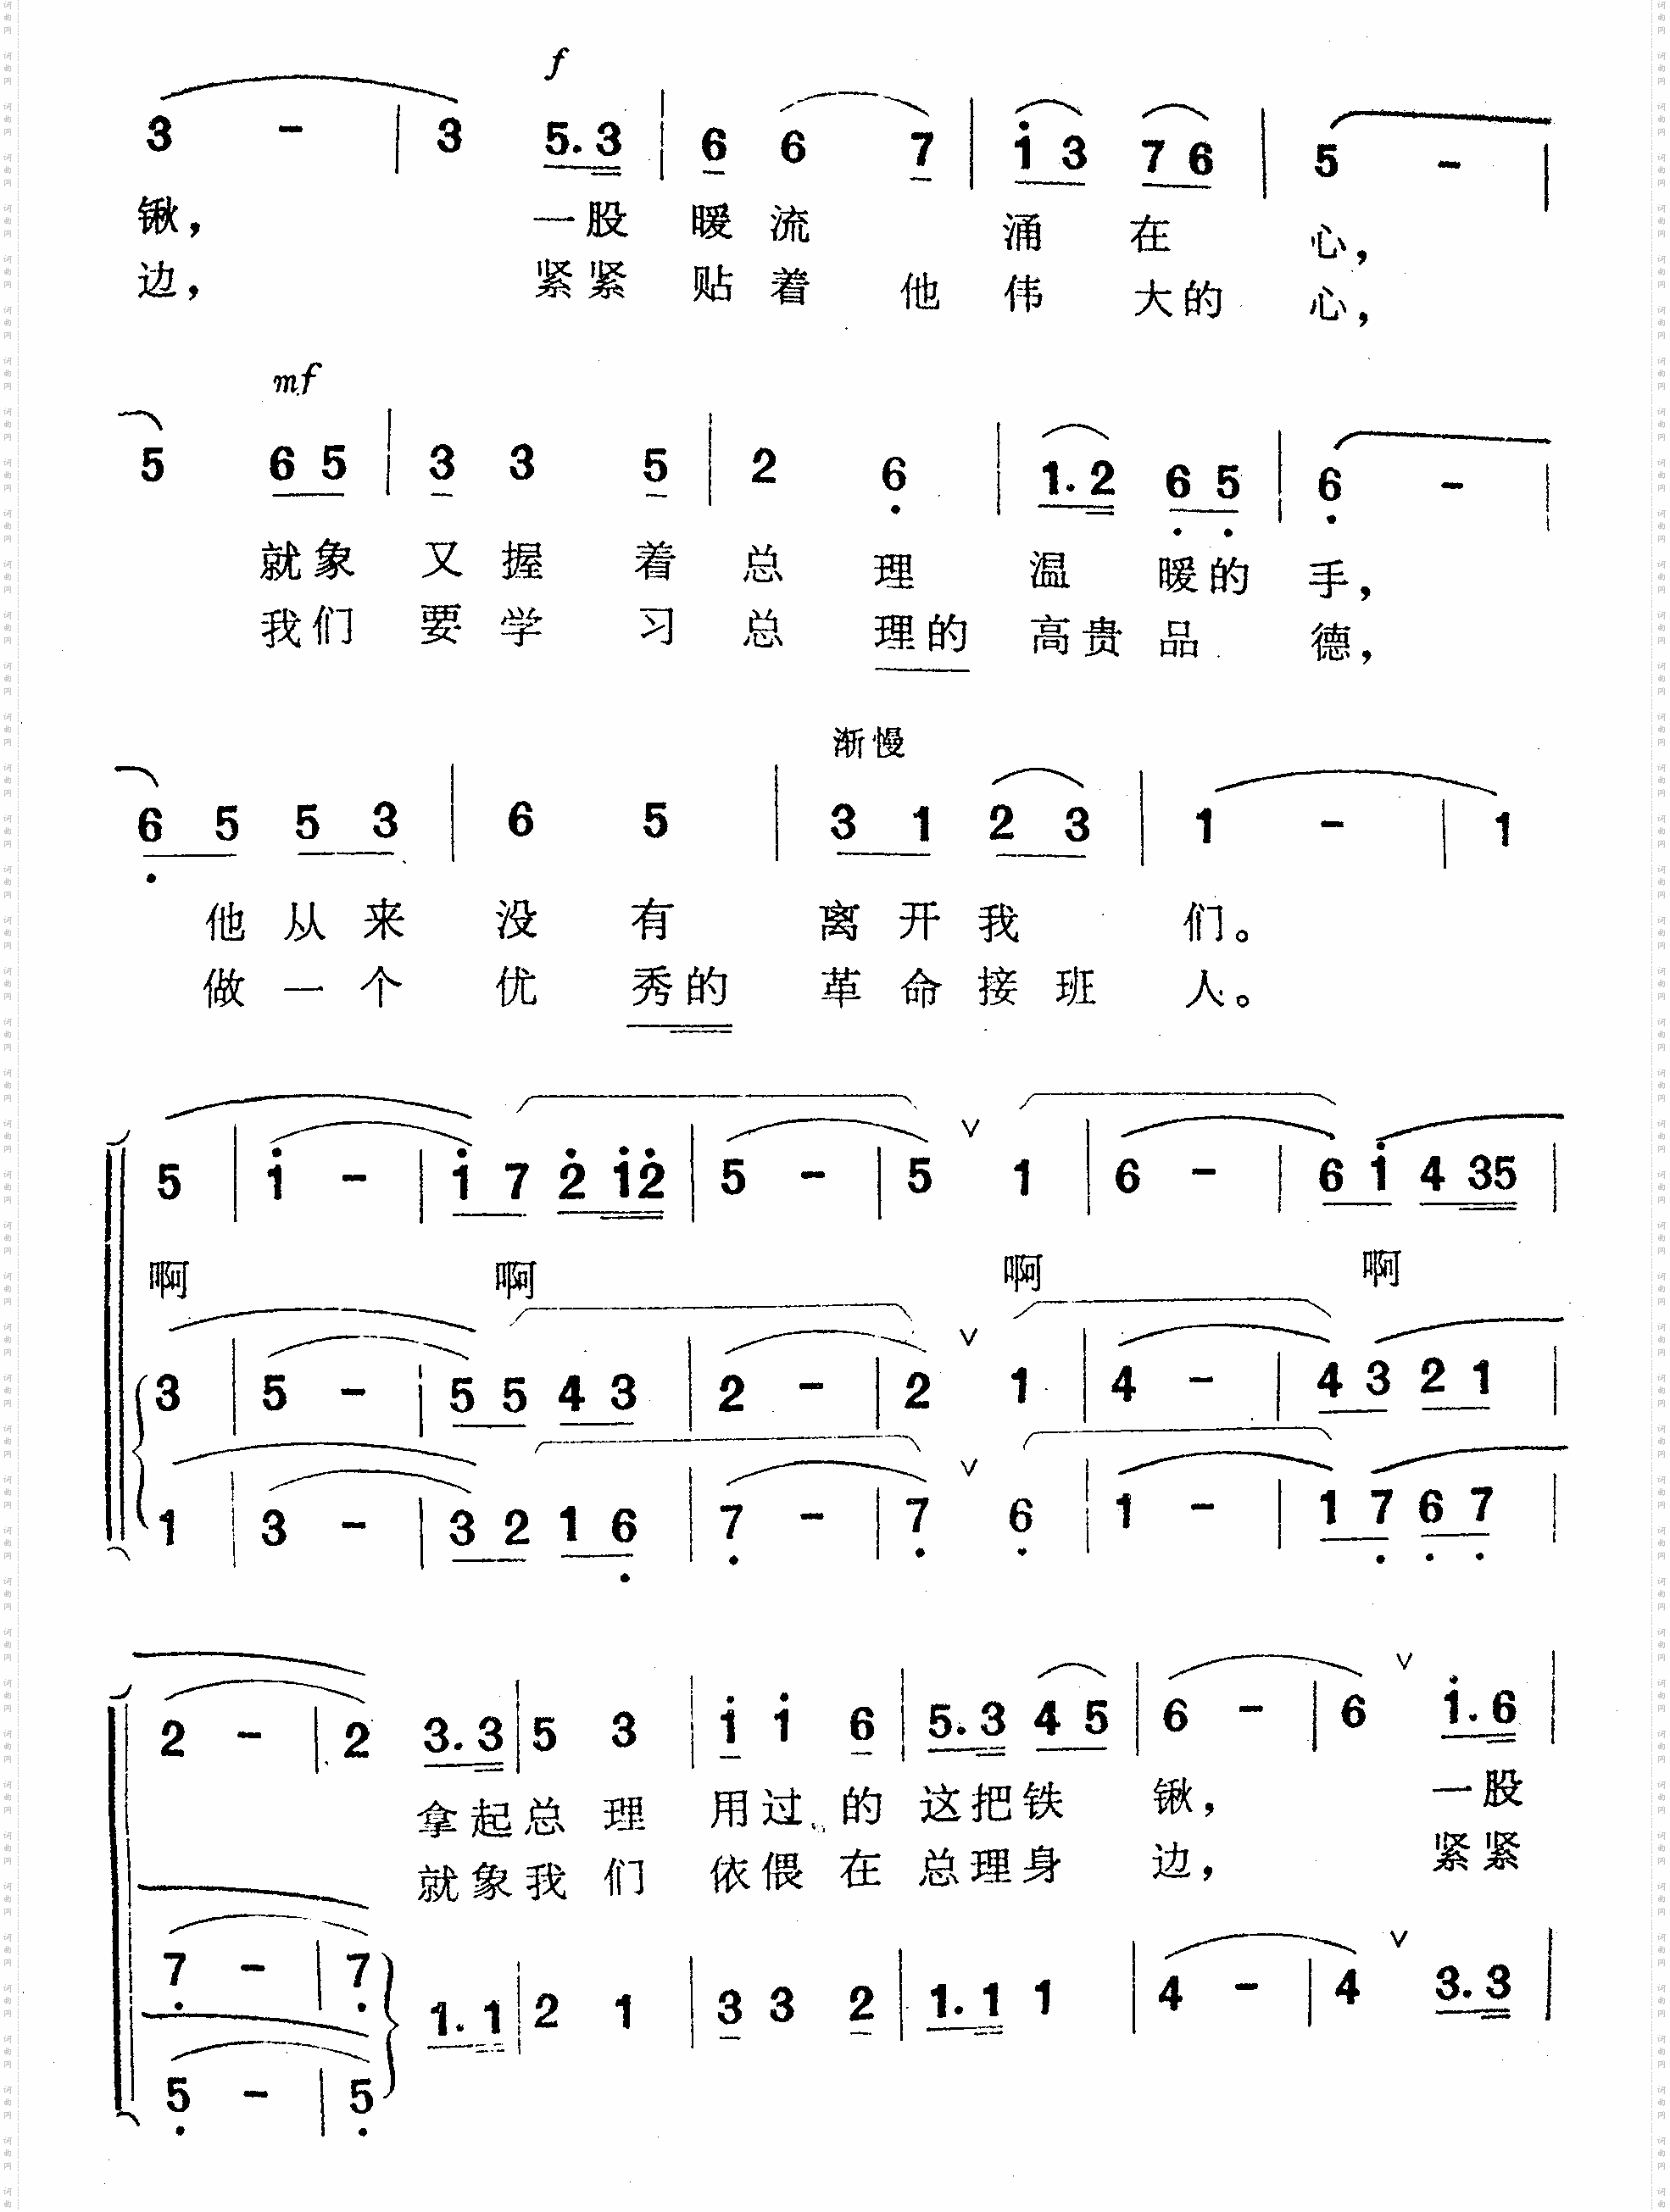 f
3 - | 3 5. 3 | 6 6 7 | i 3 7 6 | 5 - |
锹， 一股 暖 流 涌 在 心，
边， 紧紧 贴 着 他 伟 大的 心，
mf
5 6 5 | 3 3 5 | 2 6 | 1. 2 6 5 | 6 - |
就象 又 握 着 总 理 温 暖的 手，
我们 要 学 习 总 理的 高贵 品 德，
渐慢
6 5 5 3 | 6 5 | 3 1 2 3 | 1 - | 1
他 从 来 没 有 离 开 我 们。
做 一 个 优 秀的 革 命 接 班 人。
5 | i - | i 7 2 i2 | 5 - | 5 ∨ 1 | 6 - | 6 i 4 35 |
啊 啊 啊 啊
3 | 5 - | 5 5 4 3 | 2 - | 2 ∨ 1 | 4 - | 4 3 2 1 |
1 | 3 - | 3 2 1 6 | 7 - | 7 ∨ 6 | 1 - | 1 7 6 7 |
2 - | 2 3. 3 | 5 3 | i i 6 | 5. 3 4 5 | 6 - | 6 ∨ i. 6 |
拿起 总 理 用过 的 这把铁 锹， 一股
就象 我 们 依偎 在 总理身 边， 紧紧
7 - | 7 1. 1 | 2 1 | 3 3 2 | 1. 1 1 | 4 - | 4 ∨ 3. 3 |
5 - | 5